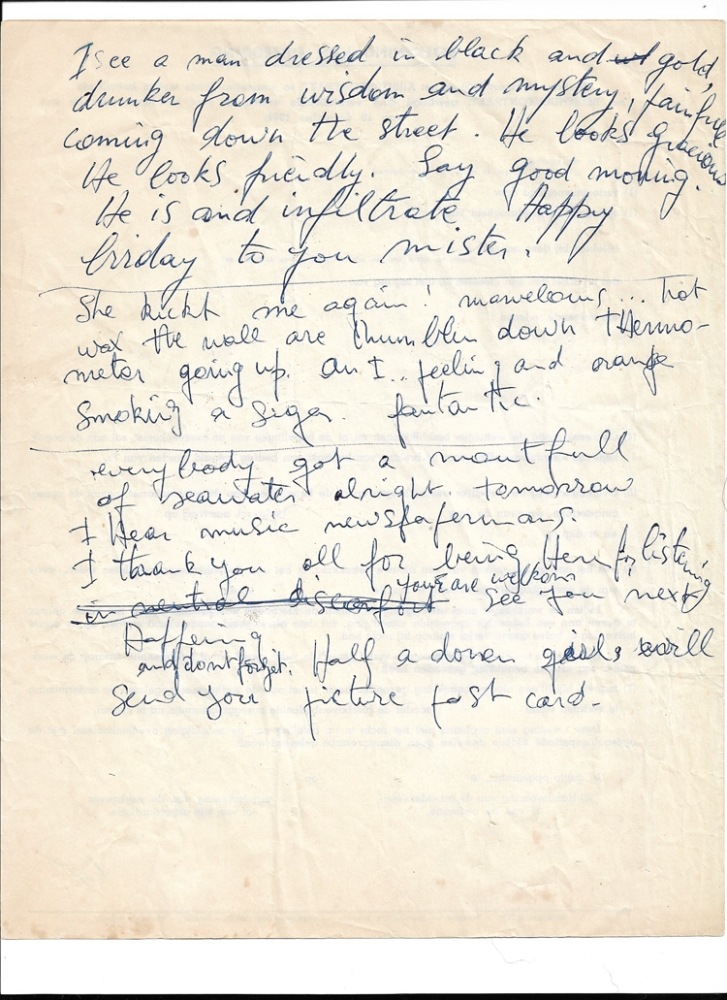 I see a man dressed in black and gold,
drunker from wisdom and mystery, fainfull
coming down the street. He looks gracious
He looks friendly. Say good morning.
He is and infiltrate Happy
birday to you mister.
She kickt me again! marvelous... hot
wax the walls are thumblin down Thermo-
meter going up. An I.. feeling and orange
Smoking a sigar. fantastic.
everybody got a mouthfull
of seawater alright. tomorrow
I Hear music newspapermans.
I thank you all for being Here for listening
youre are welkom
in neutral discomfort See you next
Happening
and dont forget. Half a dozen girls will
send you picture post card.